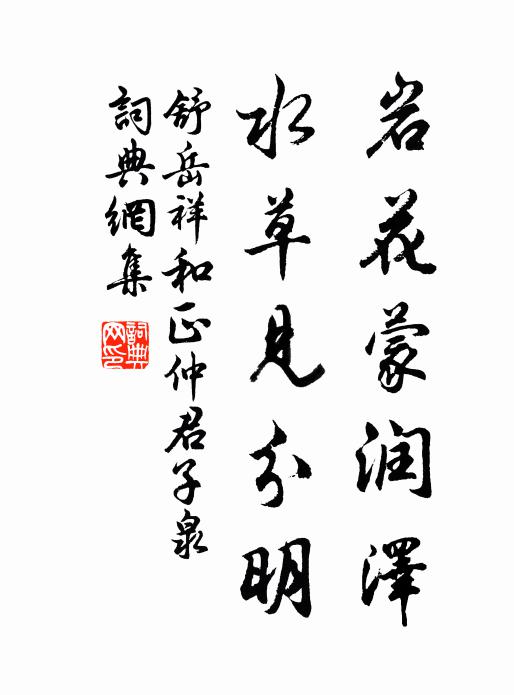 岩花蒙润澤
水草見分明
舒岳祥和正仲君子泉
詞典網集
詞典
网印